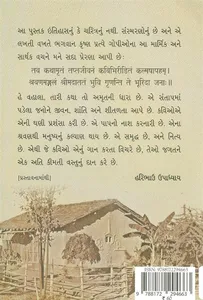 આ પુસ્તક ઇતિહાસનું કે ચરિત્રનું નથી. સંસ્મરણોનું છે અને એ
લખતી વખતે ભગવાન કૃષ્ણ પ્રત્યે ગોપીઓના આ માર્મિક અને
સાર્થક વચને મને સદા પ્રેરણા આપી છે:
तव कथामृतं तप्तजीवनं कविभिरीडितं कल्मषापहम्‌ ।
श्रवणमङ्गलं श्रीमदाततं भुवि गृणन्ति ते भूरिदा जनाः॥
હે વહાલા, તારી કથા તો અમૃતની ધારા છે. એ સંતાપમાં
પડેલા જનોને જીવન, શાંતિ અને શીતળતા આપે છે. કવિઓએ
એની ઘણી પ્રશંસા કરી છે. એ પાપનો નાશ કરનારી છે. એના
શ્રવણથી મનુષ્યનું કલ્યાણ થાય છે. એ સમૃદ્ધ છે, અને નિત્ય
છે. એથી જે કવિઓ એનું ગાન કરતા વિચરે છે, તેઓ જગતને
એક અતિ કીમતી વસ્તુનું દાન કરે છે.
હરિભાઉ ઉપાધ્યાય
(પ્રસ્તાવનામાંથી)
9 788172 294663